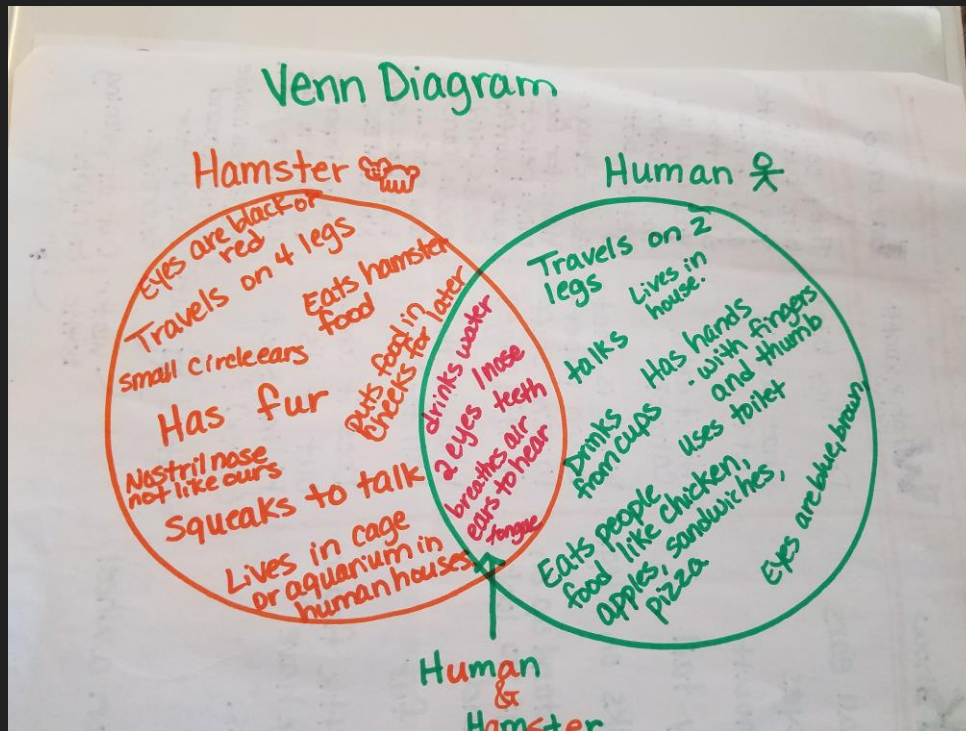 Venn Diagram
Hamster
Human
Eyes are black or
red
Travels on 4 legs
Eats hamster
food
small circle ears
Puts food in
cheeks for later
Has fur
Nostril nose
not like ours
Squeaks to talk
Lives in cage
or aquarium in
human houses
drinks water
1 nose
2 eyes teeth
breathes air
ears to hear
tongue
Travels on 2
legs
Lives in
house.
talks
Has hands
- with fingers
and thumb
Drinks
from cups
uses toilet
Eats people
food like chicken,
apples, sandwiches,
pizza
Eyes are blue, brown,
Human
&
Hamster